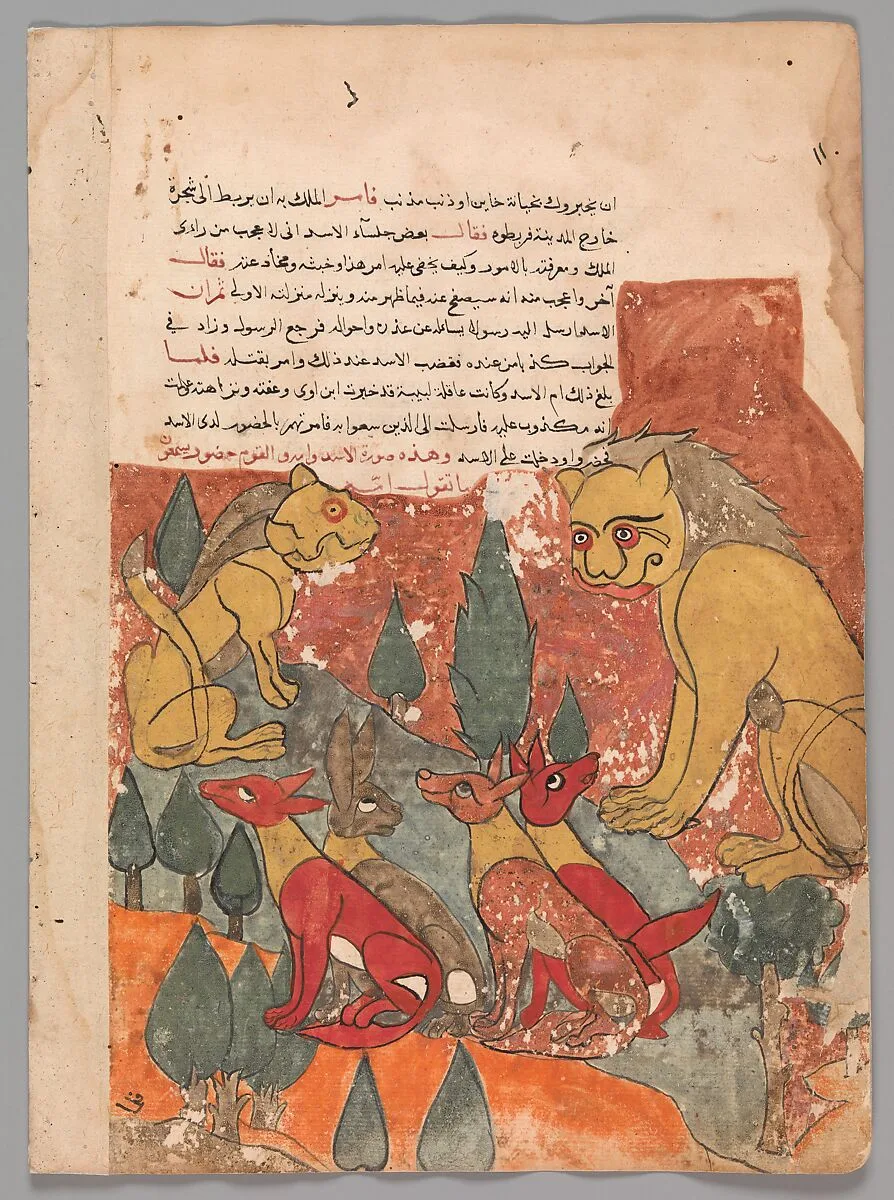 ان يخبروك بخيانة خاين او ذنب مذنب فامر الملك به ان يربط الى شجرة
خارج المدينة فربطوه فقال بعض جلسآء الاسد انى لاعجب من راى
الملك ومعرفته بالامور وكيف يخفى عليه امر هذا وخبثه ومخادعته فقال
آخر واعجب منه انه سيصفح عنه فيما ظهر منه وينزله منزلته الاولى ثم ان
الاسد ارسل اليه رسولا يساله عن عذره واحواله فرجع الرسول وزاد فى
الجواب كذبا من عنده فغضب الاسد عند ذلك وامر بقتله فلما
بلغ ذلك ام الاسد وكانت عاقلة لبيبة قد خبرت ابن اوى وعفته ونزاهته وعلمت
انه مكذوب عليه فارسلت الى الذين سعوا به فامرتهم بالحضور لدى الاسد
فحضروا ودخلت على الاسد وهذه صورة الاسد وامه و القوم حضور يسمعون
ما تقول امه
١١